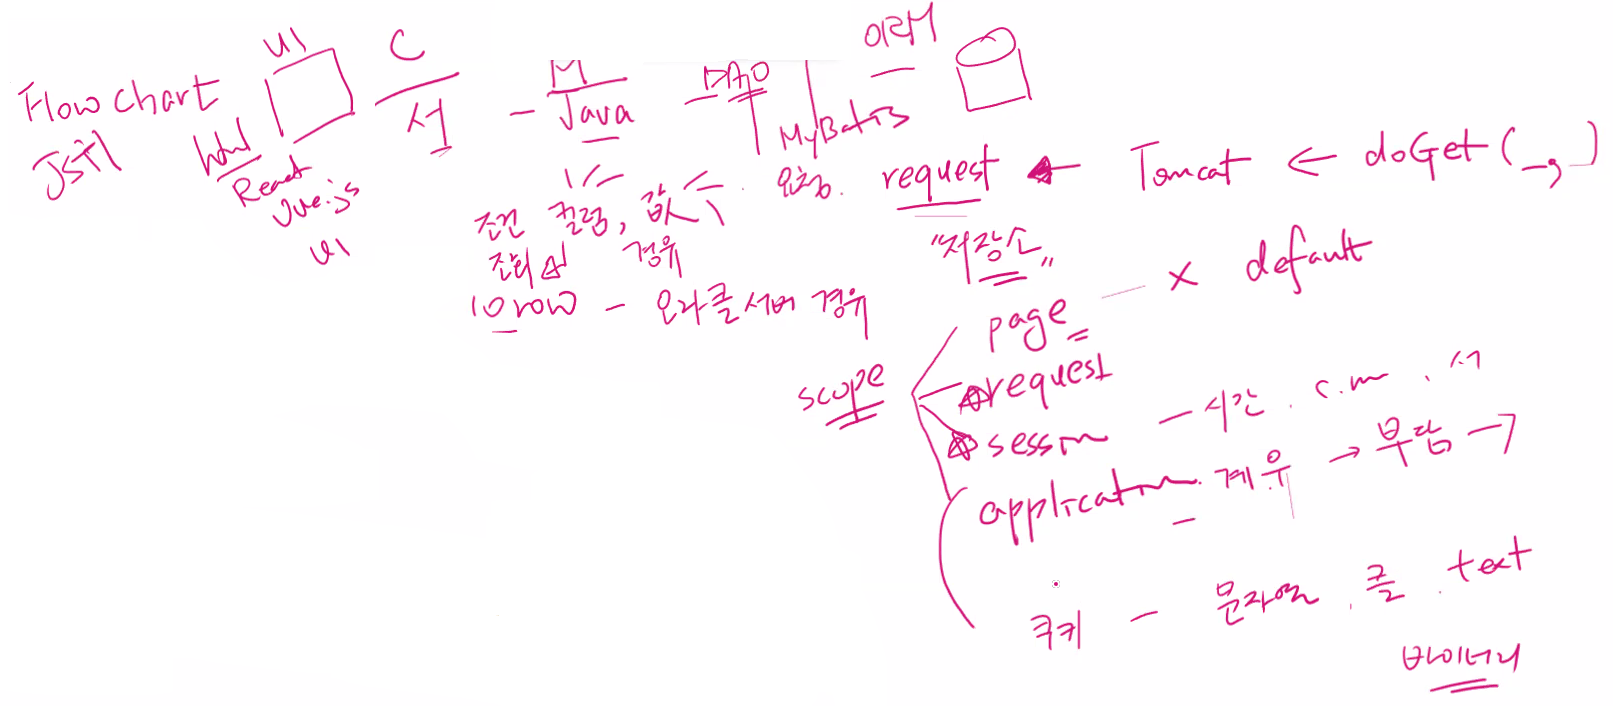 Flow chart
JSTL
UI
html
React
Vue.js
UI
C
서
M
Java
DAO
ORM
MyBatis
조건 컬럼, 값
조회시 경유
10 row - 오라클서버 경유
요청. request ← Tomcat ← doGet( , )
"저장소"
scope
page - x default
request
session - 시간. c.m . 서
application. 계속 → 부담 →
쿠키 - 문자열. 클. text
바이너리